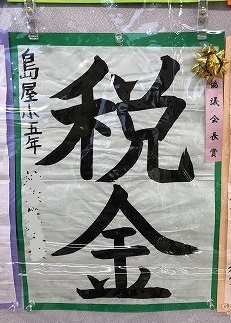 協議会長賞
税金
島屋小五年